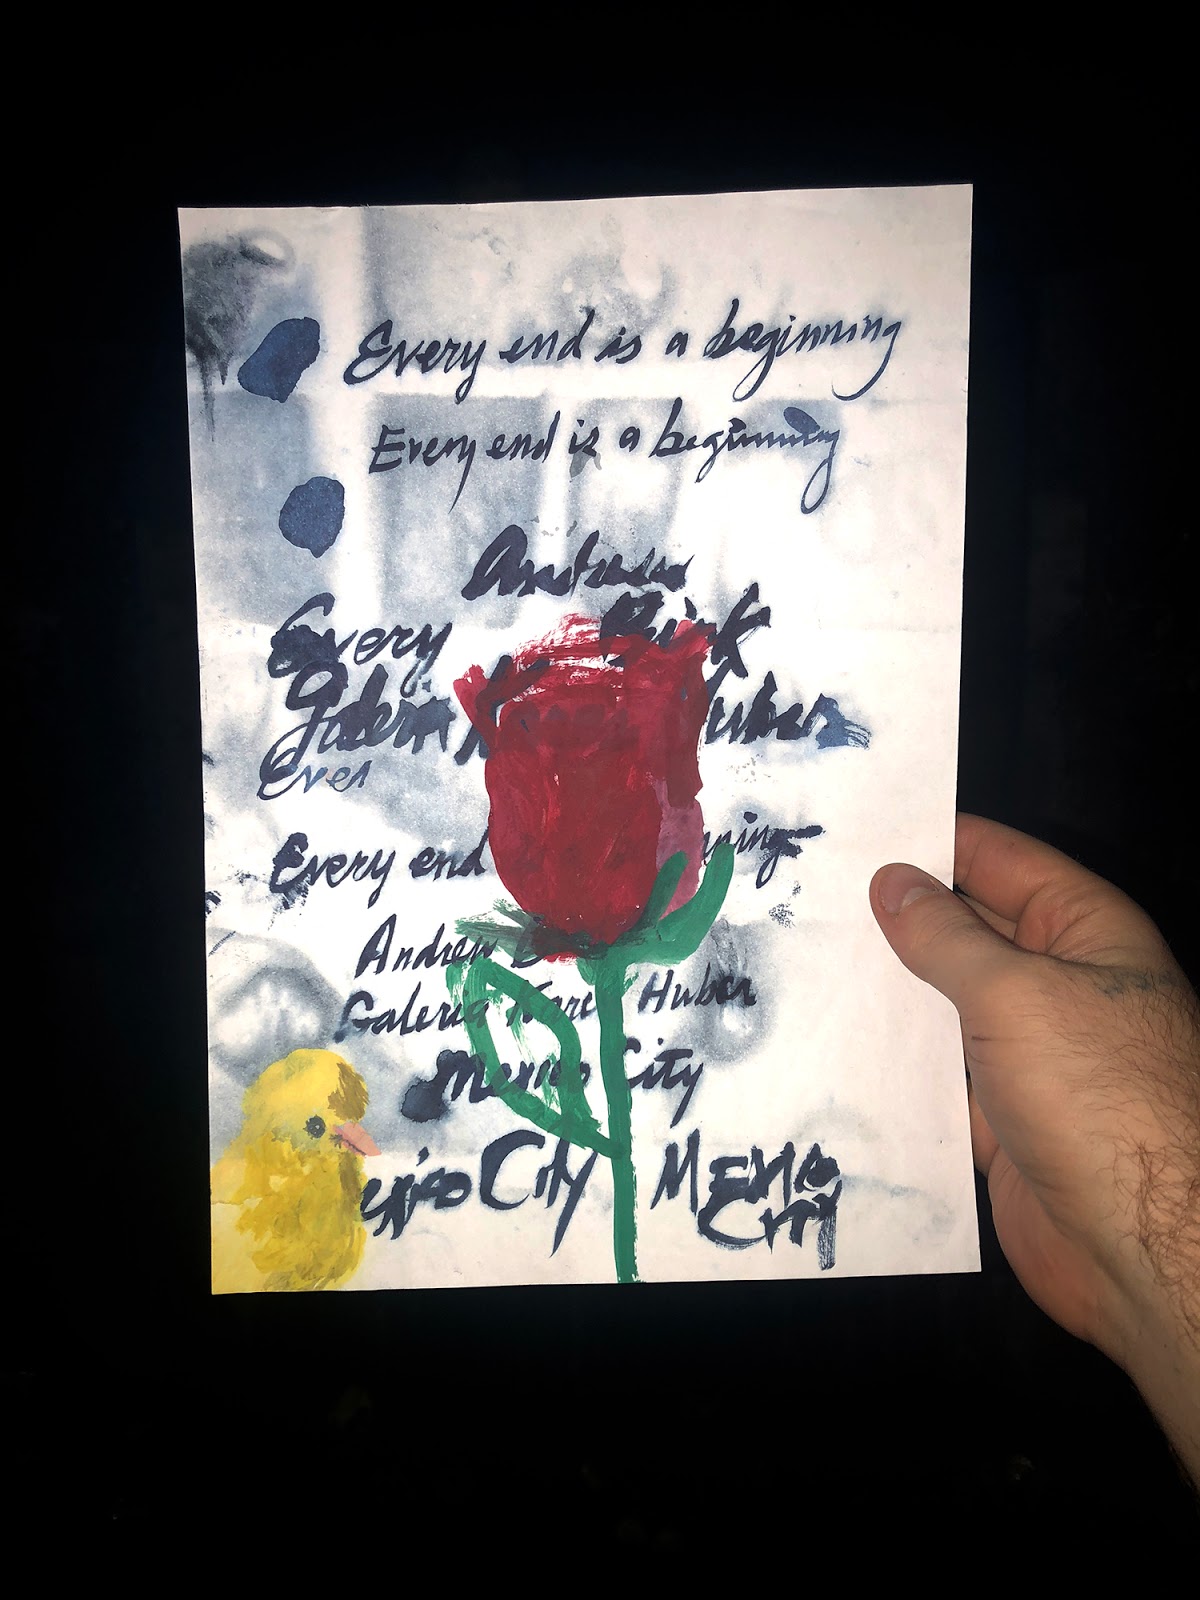 Every end is a beginning
Every end is a beginning
Andrew
Every Birk
Galeria Huber
Ever
Every end nning
Andrew B
Galeria Karen Huber
Mexico City
xico City Mexico
City